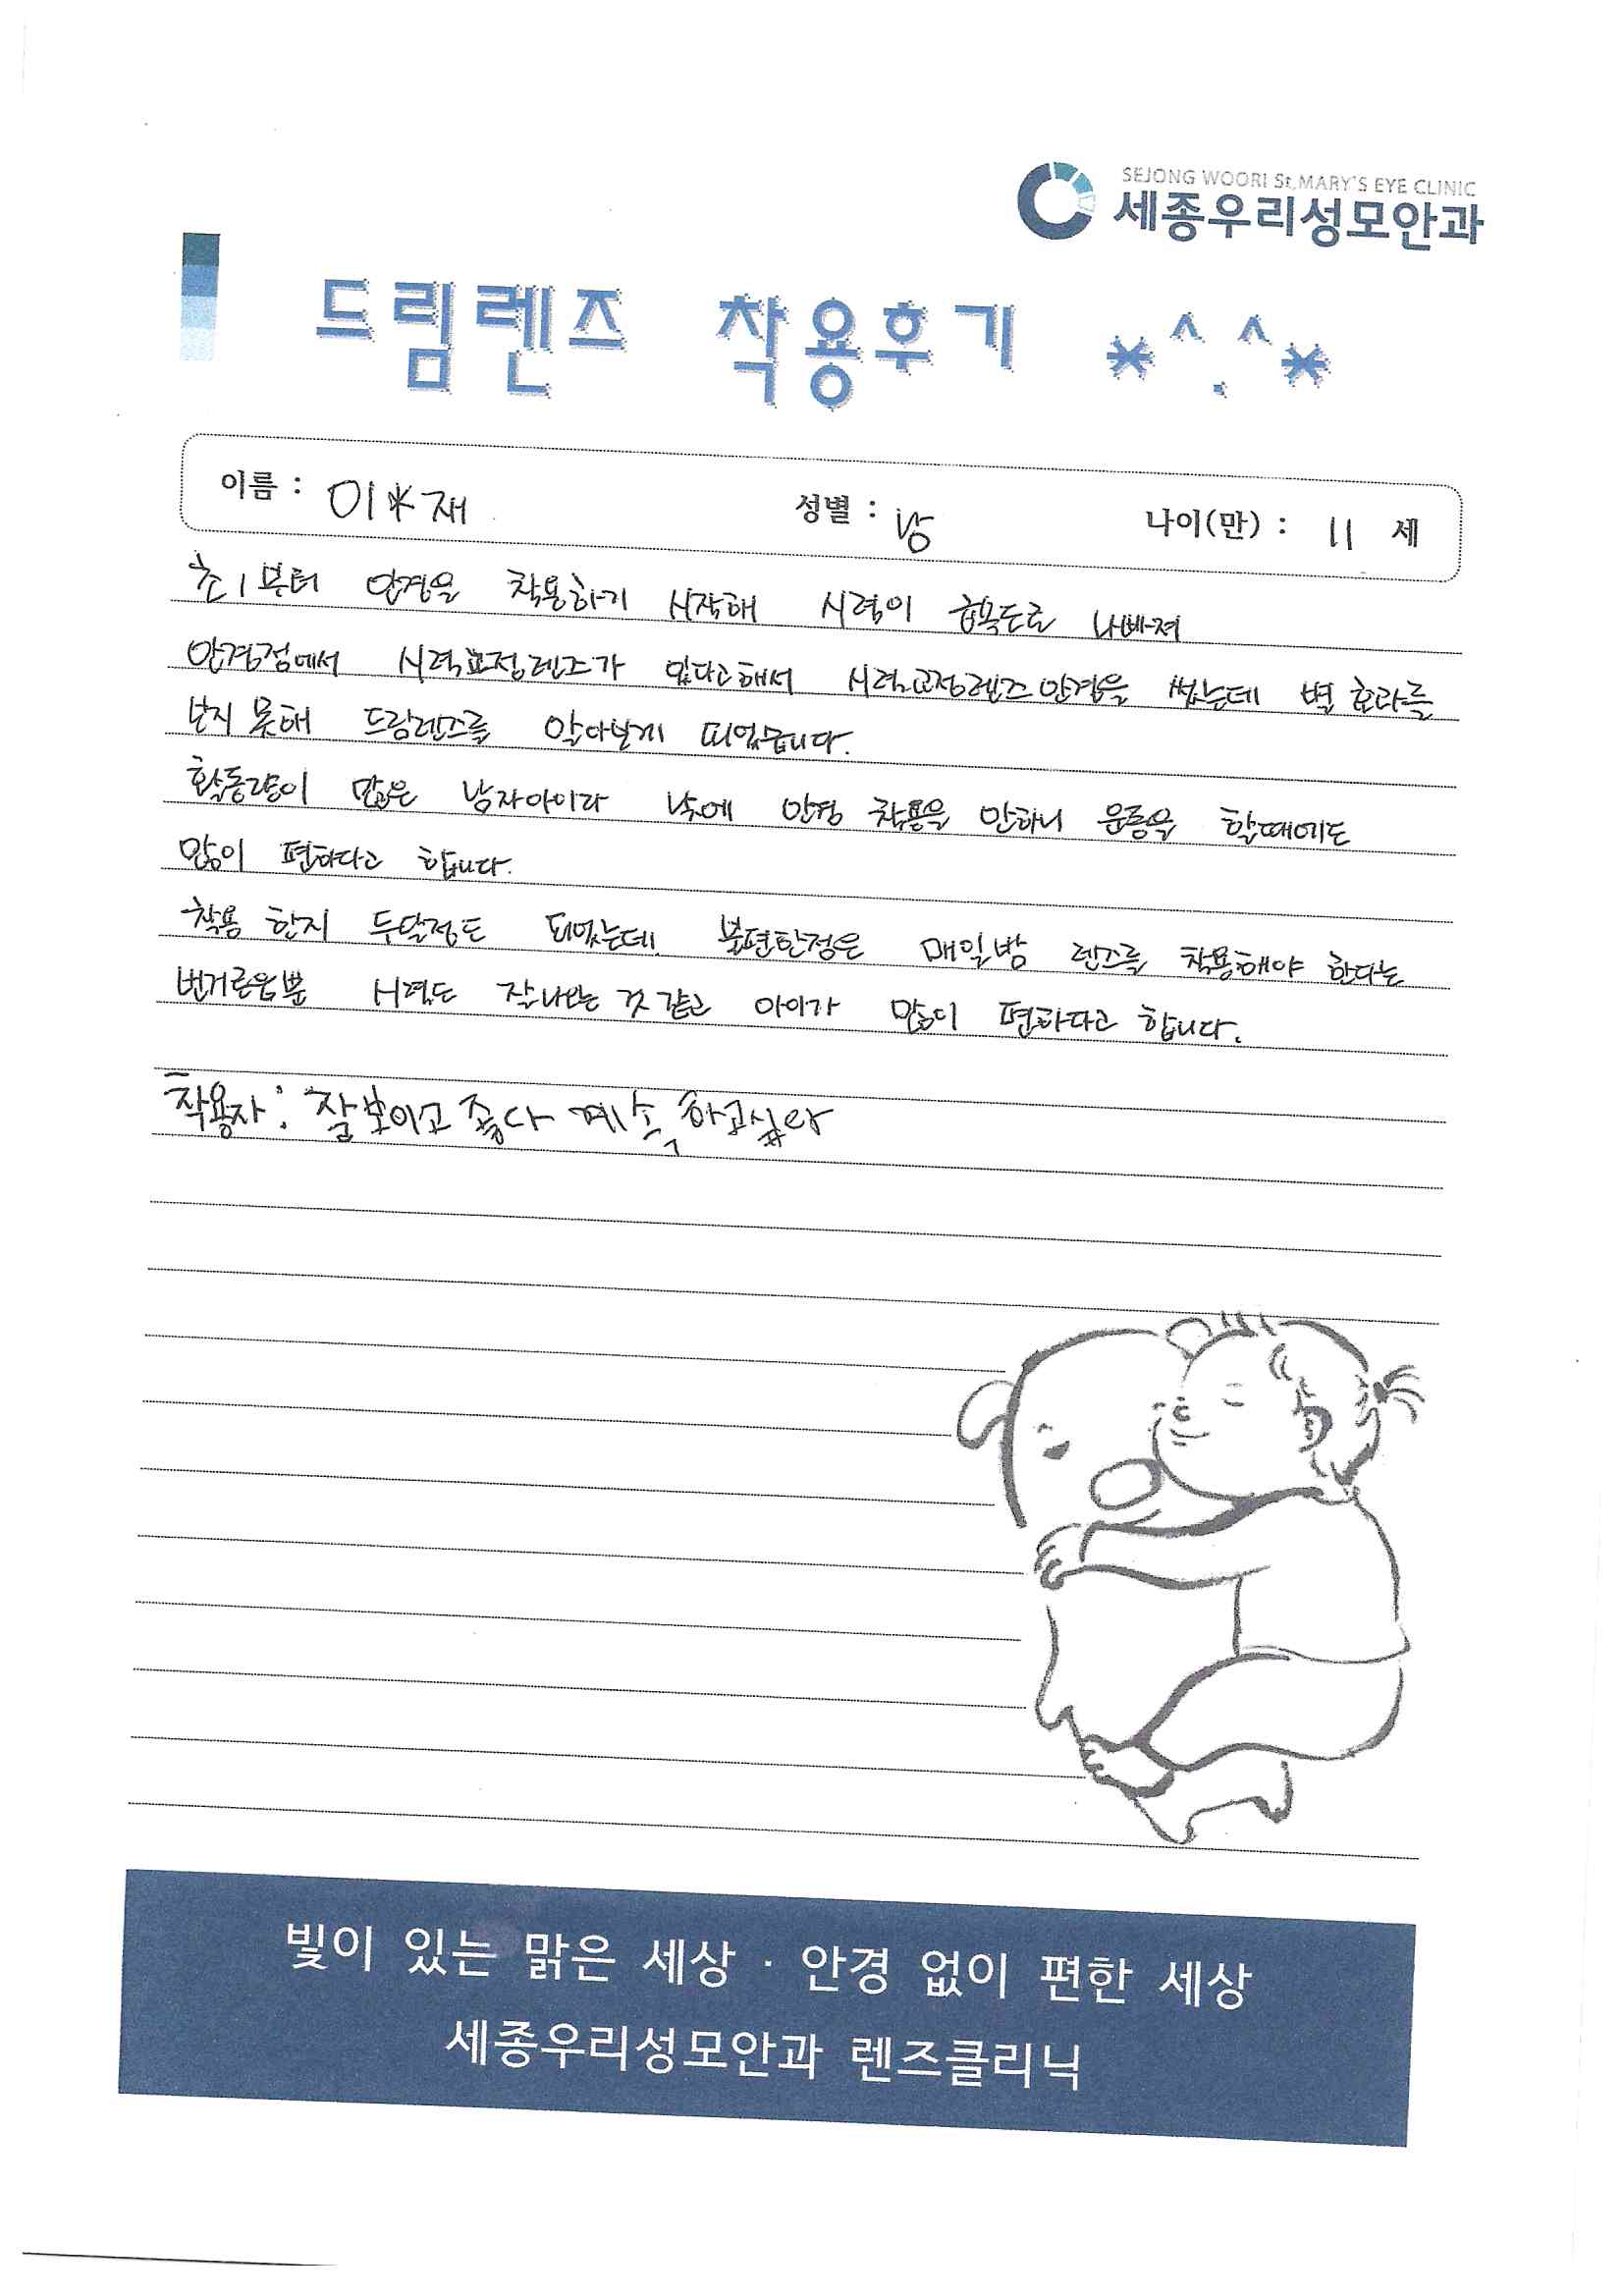 SEJONG WOORI St.MARY'S EYE CLINIC
세종우리성모안과
드림렌즈 착용후기 *^.^*
이름 : 이*재 성별 : 남 나이(만) : 11 세
초1부터 안경을 착용하기 시작해 시력이 급속도로 나빠져
안경점에서 시력교정렌즈가 있다고해서 시력교정렌즈안경을 썼는데 별 효과를
보지 못해 드림렌즈를 알아보게 되었습니다.
활동량이 많은 남자아이라 낮에 안경 착용을 안하니 운동을 할때에도
많이 편하다고 합니다.
착용 한지 두달정도 되었는데, 불편한점은 매일밤 렌즈를 착용해야 한다는
번거로움뿐 시력도 잘나오는 것 같고 아이가 많이 편하다고 합니다.
착용자: 잘보이고 좋다 계속 하고싶다
빛이 있는 맑은 세상 · 안경 없이 편한 세상
세종우리성모안과 렌즈클리닉